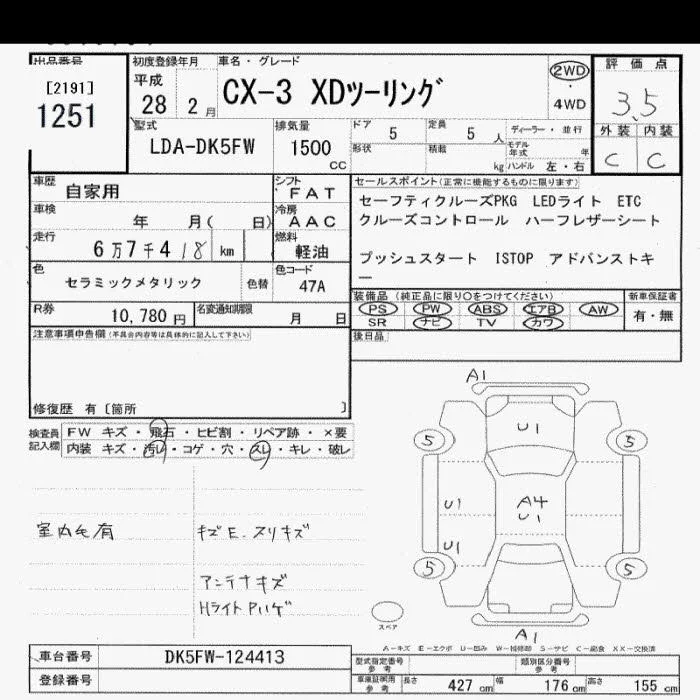 出品番号
[2191]
1251
初度登録年月
平成
28 2 月
車名・グレード
CX-3 XDツーリング
2WD
・
4WD
評価点
3.5
外装 内装
C C
型式
LDA-DK5FW
排気量
1500
CC
ドア 5
定員 5 人
形状
積載 kg
ディーラー・並行
モデル年式 年
ハンドル 左・右
車歴 自家用
車検 年 月( 日)
走行 6万7千418 km
色 セラミックメタリック 色替
シフト FAT
冷房 AAC
燃料 軽油
色コード 47A
セールスポイント(正常に機能するものに限ります)
セーフティクルーズPKG LEDライト ETC
クルーズコントロール ハーフレザーシート
プッシュスタート ISTOP アドバンストキ
ー
R券 10,780 円
名変通知期限 月 日
装備品(純正品に限り○をつけてください)
PS PW ABS エアB AW
SR ナビ TV カワ
新車保証書
有・無
後日品
注意事項申告欄(不具合内容等は具体的に記入して下さい)
修復歴 有〔箇所 〕
検査員記入欄
FW キズ・飛石・ヒビ割・リペア跡・×要
内装 キズ・汚レ・コゲ・穴・スレ・キレ・破レ
室内毛有
キズE.スリキズ
アンテナキズ
HライトPハゲ
A1
U1
5 5
U1
A4
U1
U1
5 5
スペア
A1
A-キズ E-エクボ U-凹み W-補修跡 S-サビ C-腐食 XX-交換済
車台番号 DK5FW-124413
登録番号
型式指定番号
参考
類別区分番号
参考
車庫証明用
参考
長さ 427 cm
幅 176 cm
高さ 155 cm